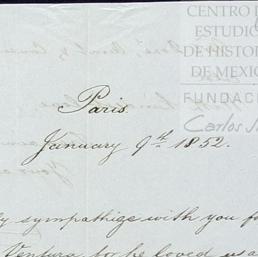 CENTRO D
ESTUDIO
DE HISTOR
DE MEXIC
FUNDAC
Carlos S
Paris.
January 9th 1852.
y sympathige with you fo
Ventura, for he loved us a